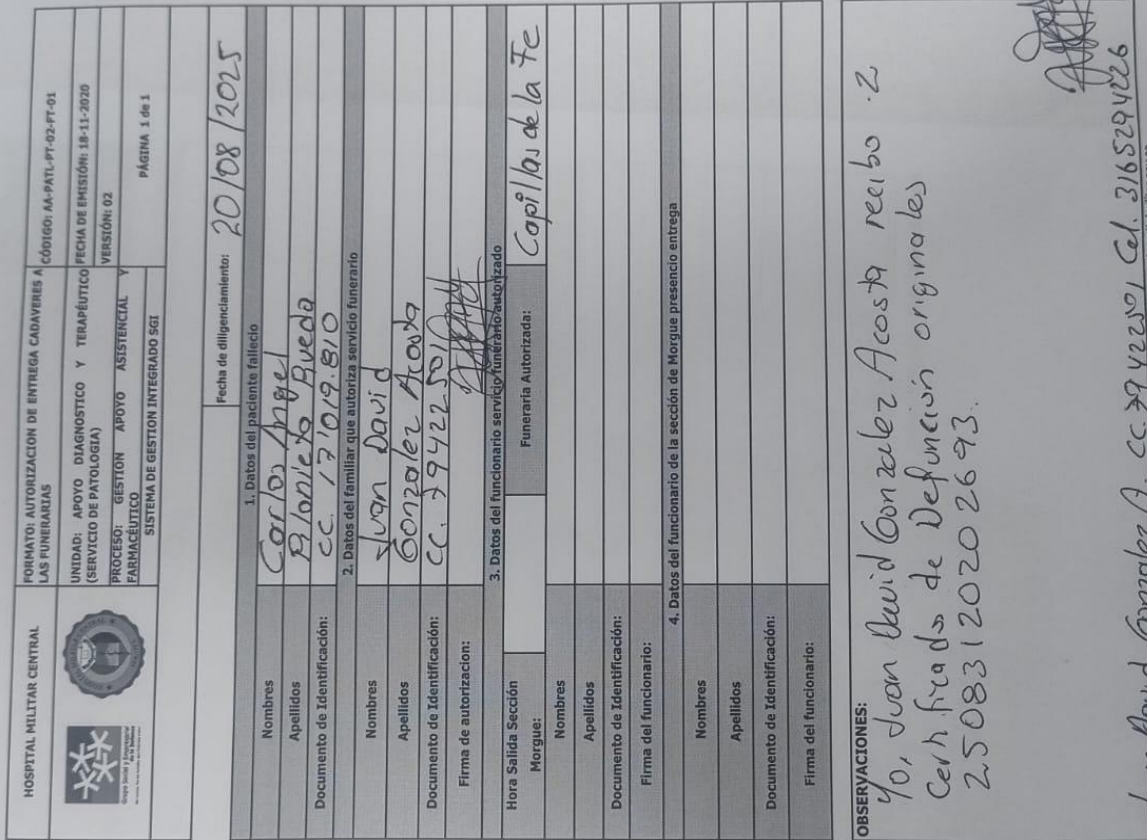 HOSPITAL MILITAR CENTRAL
FORMATO: AUTORIZACION DE ENTREGA CADAVERES A LAS FUNERARIAS
CÓDIGO: AA-PATL-PT-02-FT-01
UNIDAD: APOYO DIAGNOSTICO Y TERAPÉUTICO (SERVICIO DE PATOLOGIA)
FECHA DE EMISIÓN: 18-11-2020
PROCESO: GESTION APOYO ASISTENCIAL Y FARMACÉUTICO
VERSIÓN: 02
SISTEMA DE GESTION INTEGRADO SGI
PÁGINA 1 de 1
Fecha de diligenciamiento: 20/08/2025
1. Datos del paciente fallecio
Nombres Carlos Angel
Apellidos
Rueda
Documento de Identificación: CC. 17'019.810
2. Datos del familiar que autoriza servicio funerario
Nombres Juan David
Apellidos Gonzalez Acosta
Documento de Identificación: CC. 79422501
Firma de autorizacion:
3. Datos del funcionario servicio funerario autorizado
Hora Salida Sección Morgue:
Funeraria Autorizada: Capillas de la Fe
Nombres
Apellidos
Documento de Identificación:
Firma del funcionario:
4. Datos del funcionario de la sección de Morgue presencio entrega
Nombres
Apellidos
Documento de Identificación:
Firma del funcionario:
OBSERVACIONES:
Yo, Juan David Gonzalez Acosta recibo 2
Certificados de Defunción originales
25083120202693.
Juan David Gonzalez A CC 79422501 Cel. 3165294226